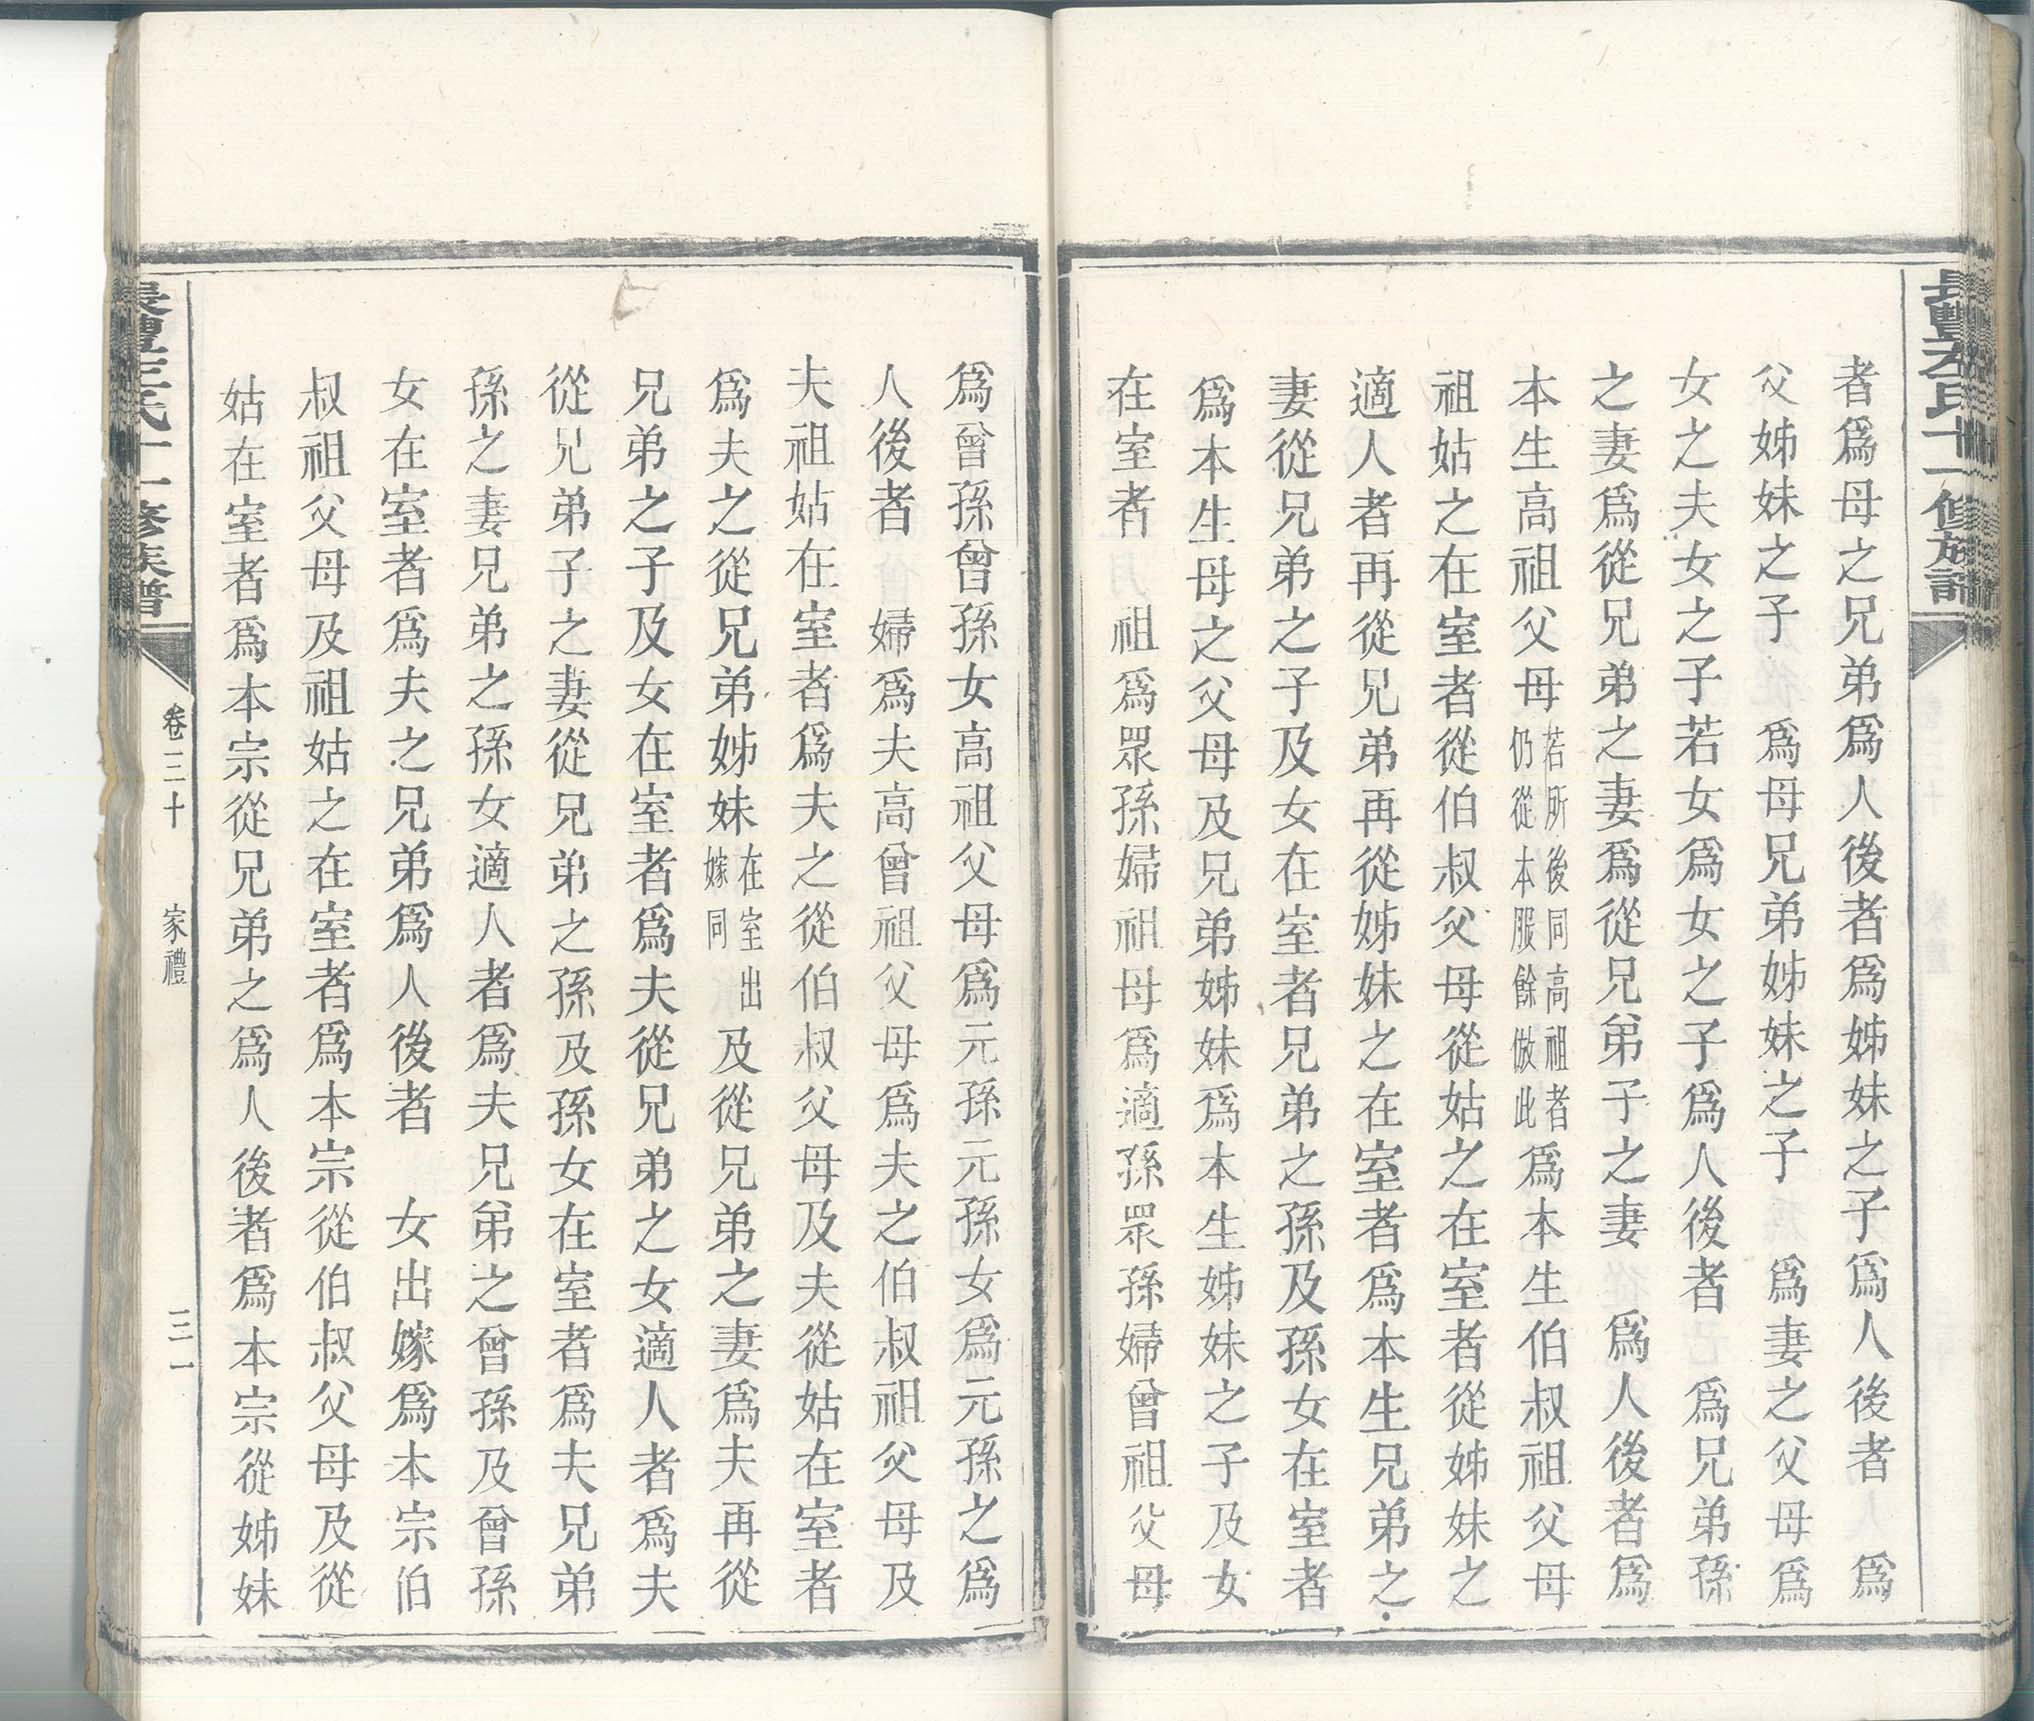 長豐左氏十一修族譜
者爲母之兄弟爲人後者爲姊妹之子爲人後者　爲
父姊妹之子　爲母兄弟姊妹之子　爲妻之父母爲
女之夫女之子若女爲女之子爲人後者　爲兄弟孫
之妻爲從兄弟之妻爲從兄弟子之妻　爲人後者爲
本生高祖父母若所後同高祖者仍從本服餘倣此爲本生伯叔祖父母
祖姑之在室者從伯叔父母從姑之在室者從姊妹之
適人者再從兄弟再從姊妹之在室者爲本生兄弟之
妻從兄弟之子及女在室者兄弟之孫及孫女在室者
爲本生母之父母及兄弟姊妹爲本生姊妹之子及女
在室者　祖爲眾孫婦祖母爲適孫眾孫婦曾祖父母
爲曾孫曾孫女高祖父母爲元孫元孫女爲元孫之爲
人後者　婦爲夫高曾祖父母爲夫之伯叔祖父母及
夫祖姑在室者爲夫之從伯叔父母及夫從姑在室者
爲夫之從兄弟姊妹在室出嫁同及從兄弟之妻爲夫再從
兄弟之子及女在室者爲夫從兄弟之女適人者爲夫
從兄弟子之妻從兄弟之孫及孫女在室者爲夫兄弟
孫之妻兄弟之孫女適人者爲夫兄弟之曾孫及曾孫
女在室者爲夫之兄弟爲人後者　女出嫁爲本宗伯
叔祖父母及祖姑之在室者爲本宗從伯叔父母及從
姑在室者爲本宗從兄弟之爲人後者爲本宗從姊妹
氏十一修族譜
卷三十　家禮　三一